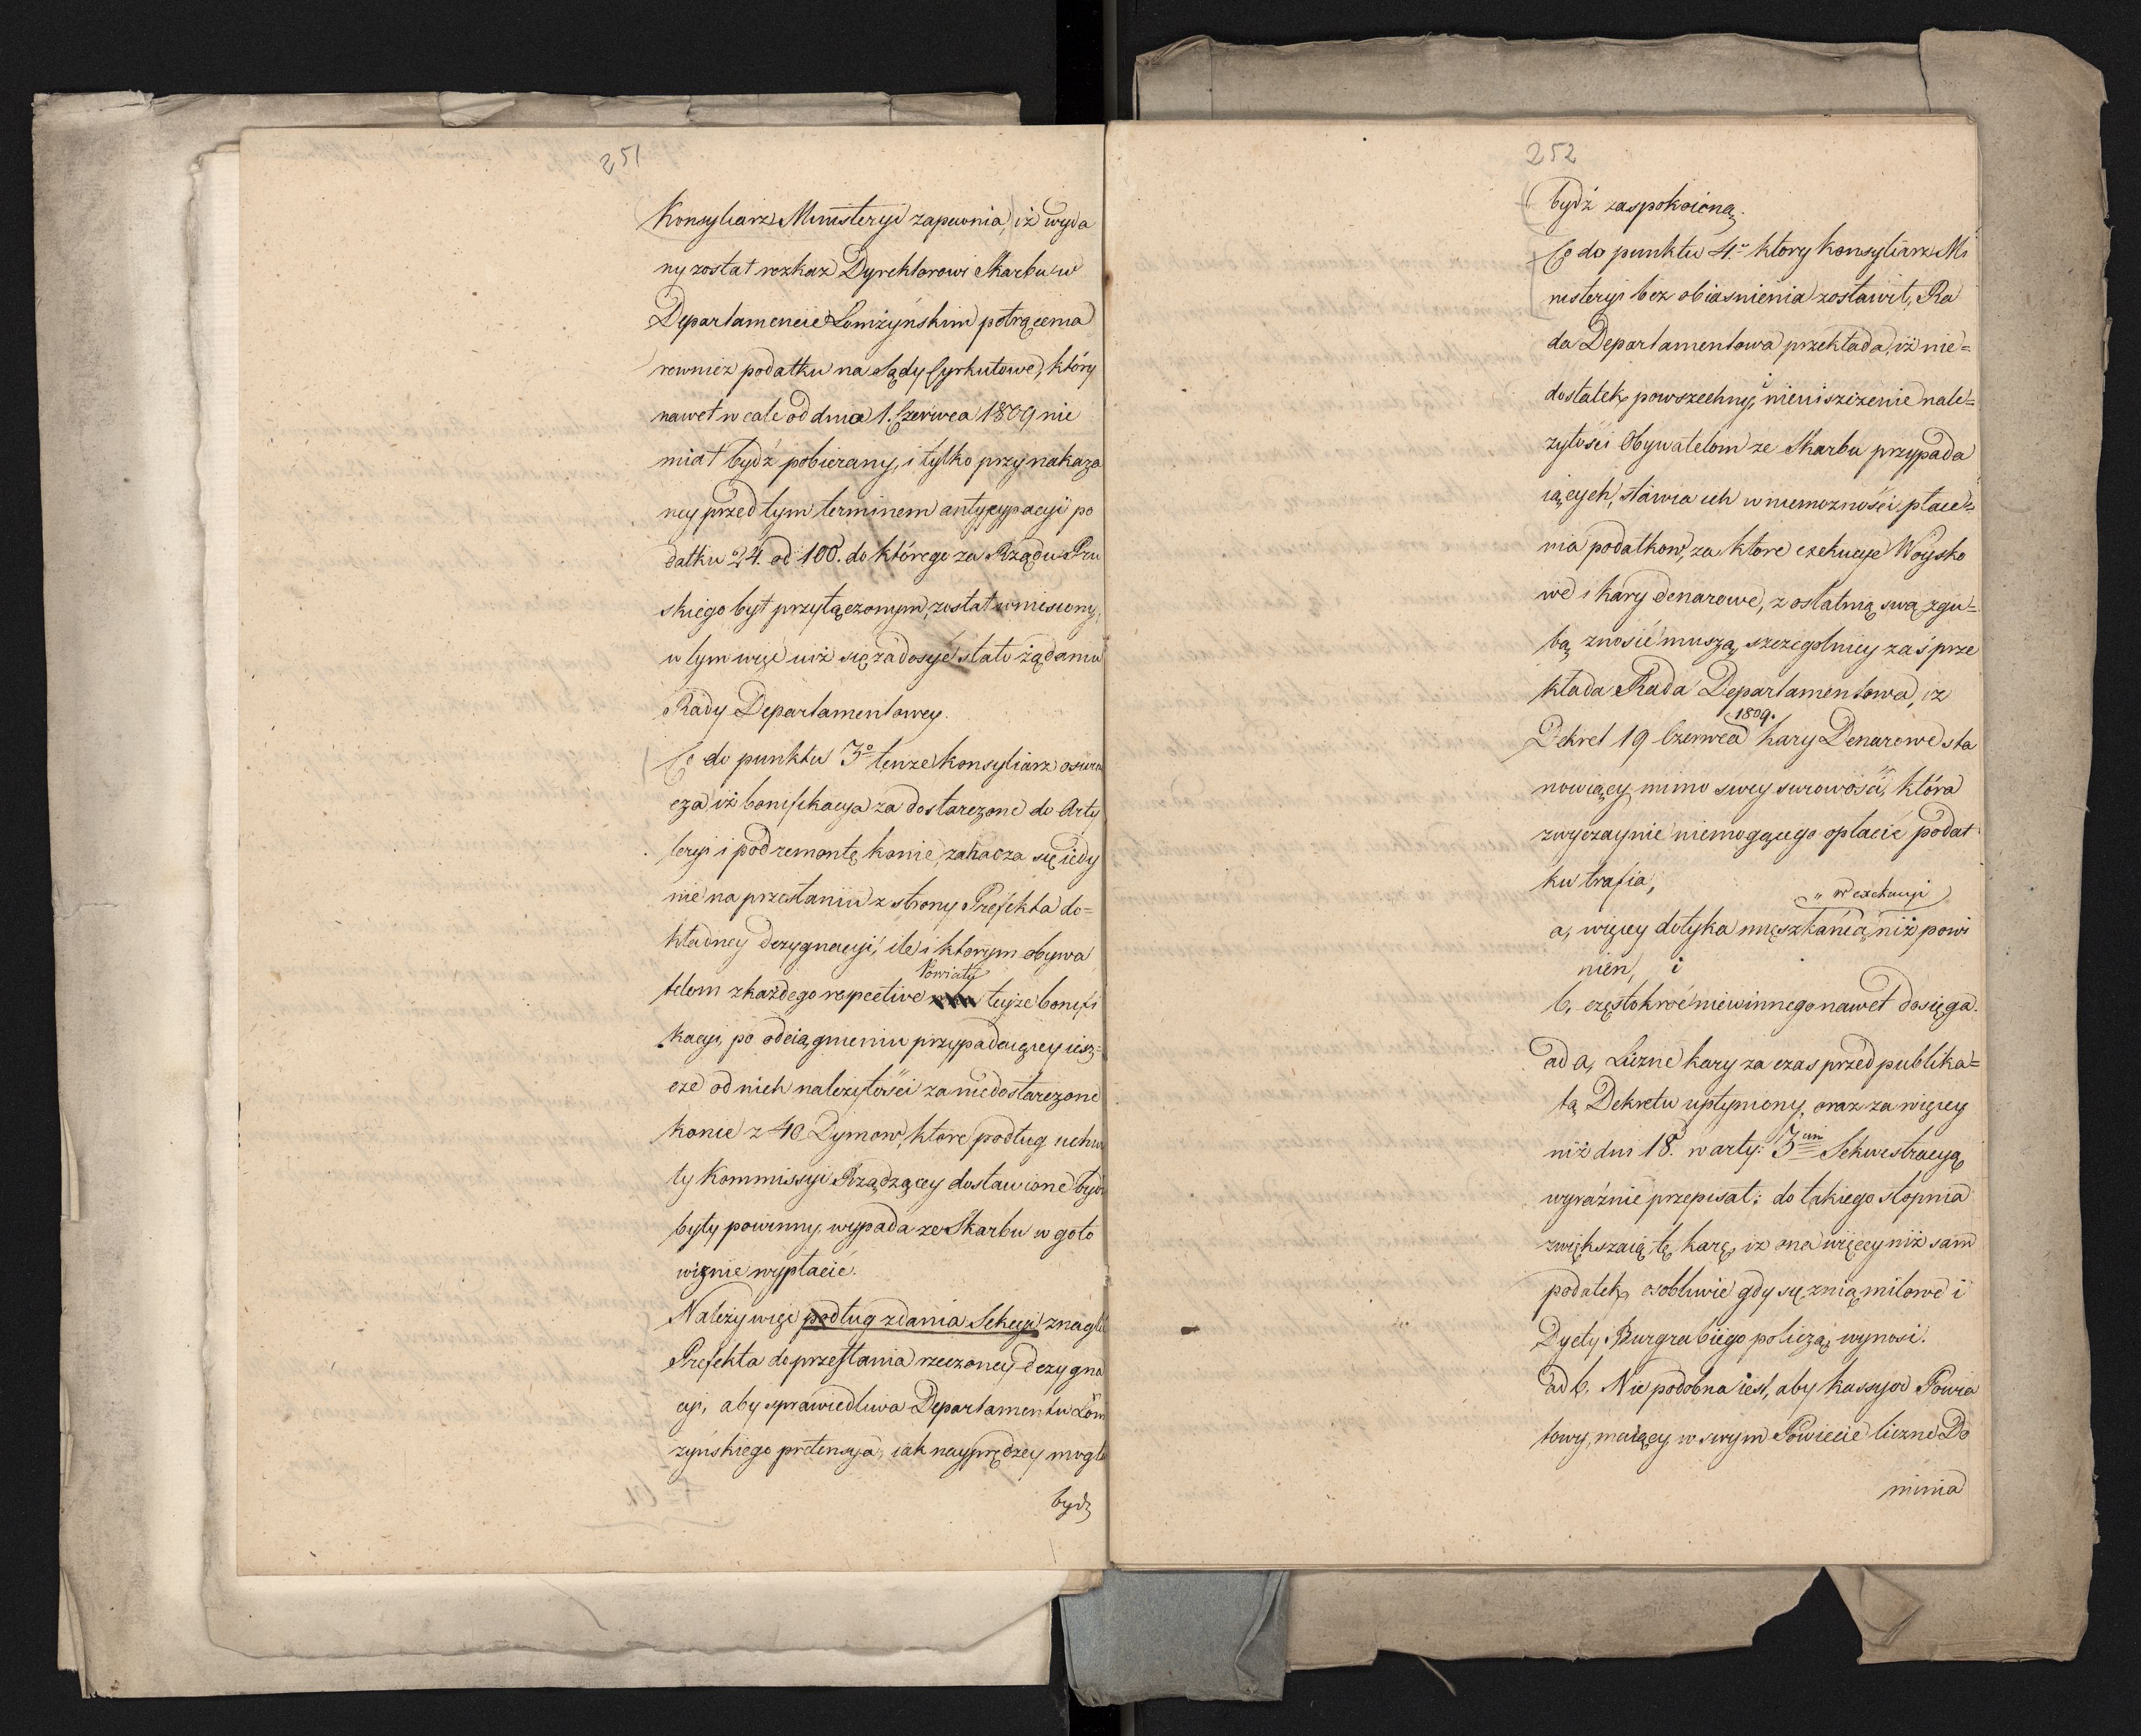 251
Konsyliarz Ministeryi zapewnia, iż wyda
ny został rozkaz Dyrektorowi Skarbu w
Departamencie Łomżyńskim potrącenia
rownież podatku na Sądy Cyrkułowe, który
nawet w cale od dnia 1. Czerwca 1809 nie
miał bydź pobierany, i tylko przy nakaza
ney przed tym terminem antycypacyi po
datku 24. od 100. do którego za Rządu Pru
skiego był przyłączonym, został wniesiony,
w tym więc iuż się zadosyć stało żądaniu
Rady Departamentowey.
Co do punktu 3º tenże Konsyliarz oświa
cza, iż bonifikacya za dostarczone do Arty
leryi i pod remontę konie, zahacza się iedy
nie na przesłaniu z strony Prefekta do=
kładney dezygnacyi, ile i ktorym obywa
telom z każdego respective Powiatu teyże bonifi
kacyi, po odciągnieniu przypadaiącey iesz=
cze od nich należytości za niedostarczone
konie z 40 Dymow, które podług uchwa
ły Kommissyi Rządzącey dostawione bydź
były powinny, wypada ze Skarbu w goto
wiznie wypłacić.
Należy więc podług zdania Sekcyi znaglić
Prefekta do przesłania rzeczoney dezygna
cyi, aby sprawiedliwa Departamentu Łom
żyńskiego pretensya, iak nayprędzey mogła
bydź
252
bydź zaspokoioną.
Co do punktu 4º ktory Konsyliarz Mi
nisteryi bez obiasnienia zostawił, Ra
da Departamentowa przekłada, iż nie=
dostatek powszechny, nieuiszczenie nale=
żytości Obywatelom ze Skarbu przypada
iących, stawia ich w niemożności płace=
nia podatkow, za ktore exekucye Woysko
we i kary denarowe, z ostatnią swą zgu=
bą znosić muszą, szczegolniey zaś prze
kłada Rada Departamentowa, iż
Dekret 19 Czerwca 1809. kary Denarowe sta
nowiący mimo swey surowości, która
zwyczaynie niemogącego opłacić podat
ku trafia,
„ w exekucyi
a, więcey dotyka mięszkańca niż powi
nien, i
b, częstokroć niewinnego nawet dosięga.
ad a, Liczne kary za czas przed publika=
tą Dekretu upłyniony, oraz za więcey
niż dni 18. w arty: 3cim Sekwestracyą
wyraźnie przepisał; do takiego stopnia
zwiększaią tę karę, iż ona więcey niż sam
podatek, osobliwie gdy się z nią milowe i
Dyety Burgrabiego policzą, wynosi.
ad b. Nie podobna iest, aby kassyer Powia
towy, maiący w swym Powiecie liczne Do
minia